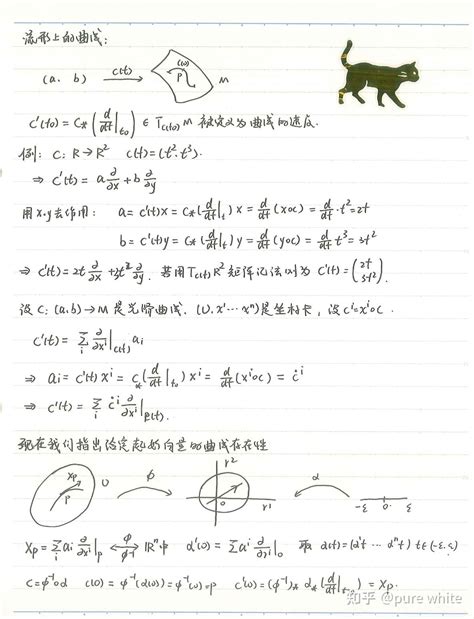 流形上的曲线:
(a. b) c(t) (U) p M
c'(t₀) = c*(d/dt|t₀) ∈ T_{c(t₀)} M 被定义为曲线的速度.
例: c: R→R² c(t)=(t², t³).
⇒ c'(t) = a ∂/∂x + b ∂/∂y
用x.y去作用: a = c'(t)x = c*(d/dt|t₀) x = d/dt (x∘c) = d/dt t² = 2t
b = c'(t)y = c*(d/dt|t₀) y = d/dt (y∘c) = d/dt t³ = 3t²
⇒ c'(t) = 2t ∂/∂x + 3t² ∂/∂y. 若用T_{c(t)}R²矩阵记法则为 c'(t) = (2t 3t²)
设 c: (a.b)→M 是光滑曲线. (U, x¹ ⋯ xⁿ)是坐标卡, 设 cⁱ=xⁱ∘c
c'(t) = Σᵢ ∂/∂xⁱ|c(t) aᵢ
⇒ aᵢ = c'(t) xⁱ = c*(d/dt|t₀) xⁱ = d/dt (xⁱ∘c) = ċⁱ
⇒ c'(t) = Σᵢ ċⁱ ∂/∂xⁱ|c(t).
现在我们指出给定起始向量的曲线存在性
Xp p U ϕ r² 0 r¹ α -ε 0 ε
Xp = Σᵢ aⁱ ∂/∂xⁱ|p ϕ ϕ⁻¹ ℝⁿ中 α'(0) = Σ aⁱ ∂/∂rⁱ|0 取 α(t) = (a¹t ⋯ aⁿt) t∈(-ε. ε)
c = ϕ⁻¹∘α c(0) = ϕ⁻¹(α(0)) = ϕ⁻¹(0) = p c'(0) = (ϕ⁻¹)* α*(d/dt|t=0) = Xp.
知乎 @pure white